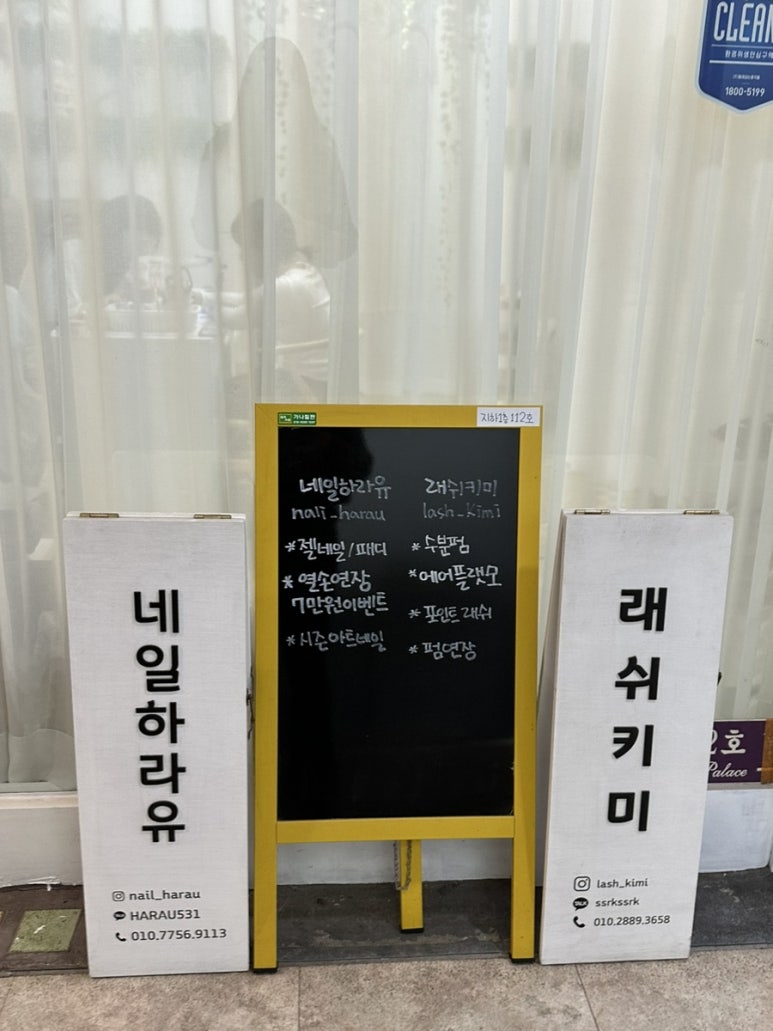 CLEAN
1800-5199
가나칠판
지하1층 112호
네일하라유
nali_harau
*젤네일/패디
*열손연장
7만원이벤트
*시즌아트네일
래쉬키미
lash_kimi
*수분펌
*에어플랫모
*포인트래쉬
*펌연장
네일하라유
nail_harau
HARAU531
010.7756.9113
래쉬키미
lash_kimi
TALK
ssrkssrk
010.2889.3658
2호
Palace